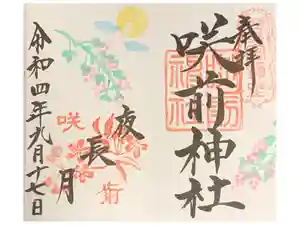 奉拝
咲前神社
夜長月
咲
前
令和四年九月十七日